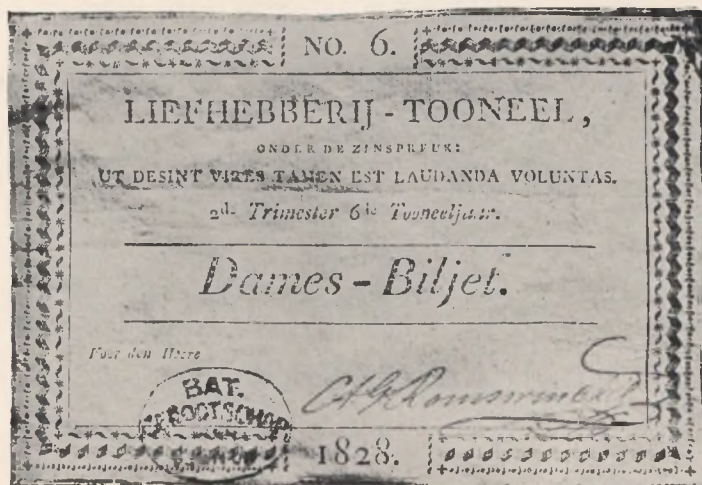 NO. 6.
LIEFHEBBERIJ - TOONEEL,
ONDER DE ZINSPREUK:
UT DESINT VIRES TAMEN EST LAUDANDA VOLUNTAS.
2de Trimester 6de Tooneeljaar.
Dames - Biljet.
Voor den Heere
BAT.
GENOOTSCHAP
1828.